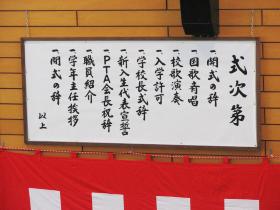 式次第
一開式の辞
一国歌斉唱
一校歌演奏
一入学許可
一学校長式辞
一新入生代表宣誓
一PTA会長祝辞
一職員紹介
一学年主任挨拶
一閉式の辞
以上